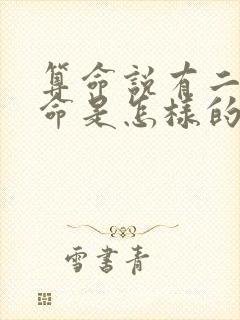 算命説有二
命是怎樣的
雪書青